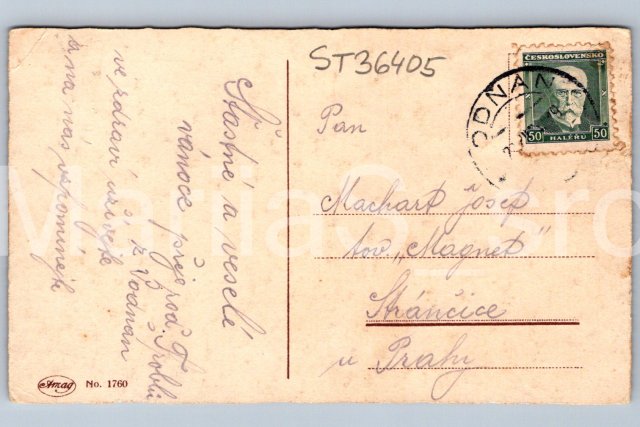 ST36405
ČESKOSLOVENSKO
50 50
HALÉŘŮ
ODNAN
Pan
Machart Josef
tov. „Magnet"
Stránčice
u Prahy
Šťastné a veselé
vánoce přeje pod.
z Vodnan
ve zdraví užívejte
a na nás vzpomínejte
Amag No. 1760